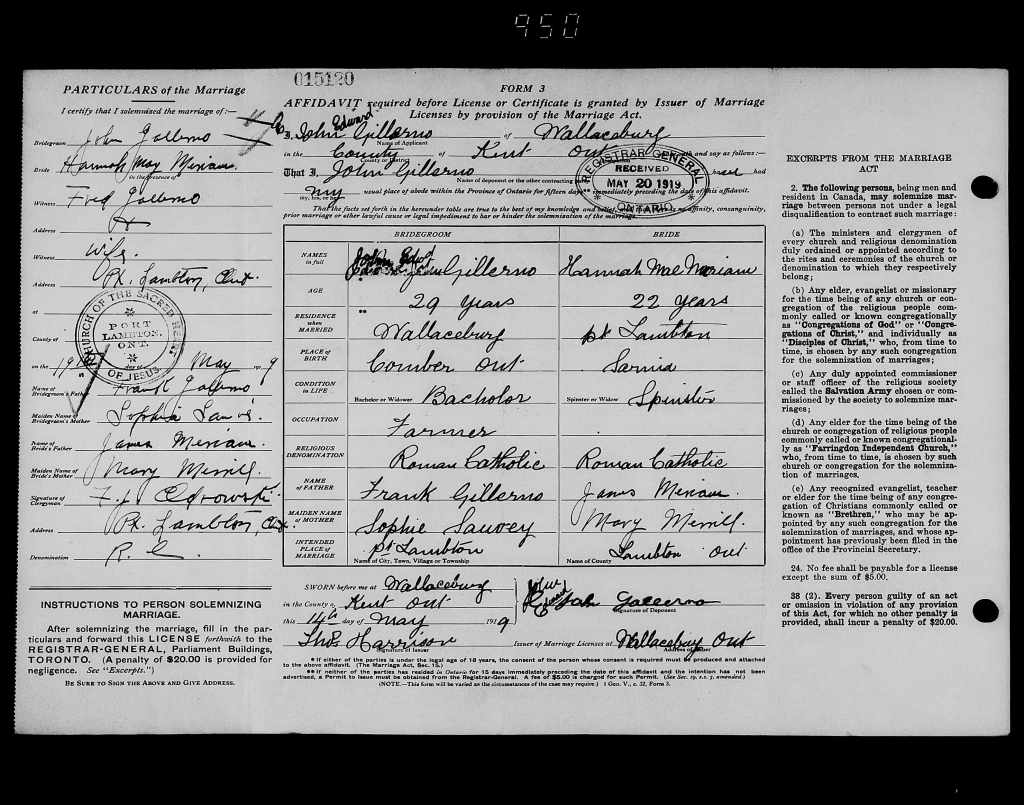 950
PARTICULARS of the Marriage
I certify that I solemnized the marriage of:—
Bridegroom John Gallerno
Bride Hannah May Miriam
In the presence of
Witness Fred Gallerno
Address
Witness Wife.
Address Pt. Lambton, Ont.
at
County of
CHURCH OF THE SACRED HEART OF JESUS
PORT LAMBTON, ONT.
on the 19 day of May 19 9
Name of Bridegroom's Father Frank Gallerno
Maiden Name of Bridegroom's Mother Sophia
Name of Bride's Father James Miriam.
Maiden Name of Bride's Mother Mary Merrill.
Signature of Clergyman
Address Pt. Lambton, Ont.
Denomination R. C.
INSTRUCTIONS TO PERSON SOLEMNIZING MARRIAGE.
After solemnizing the marriage, fill in the par-
ticulars and forward this LICENSE forthwith to the
REGISTRAR-GENERAL, Parliament Buildings,
TORONTO. (A penalty of $20.00 is provided for
negligence. See "Excerpts.")
BE SURE TO SIGN THE ABOVE AND GIVE ADDRESS.
015120
FORM 3
AFFIDAVIT required before License or Certificate is granted by Issuer of Marriage
Licenses by provision of the Marriage Act.
I, John Edward Gillerno of Wallaceburg
Name of Applicant
in the County of Kent Ont and say as follows:—
County or District
That I, John Gillerno had
Name of deponent or the other contracting
my usual place of abode within the Province of Ontario for fifteen days** immediately preceding the date of this affidavit.
That the facts set forth in the hereunder table are true to the best of my knowledge and belief, no affinity, consanguinity,
prior marriage or other lawful cause or legal impediment to bar or hinder the solemnization of the marriage.
REGISTRAR GENERAL
RECEIVED
MAY 20 1919
ONTARIO
BRIDEGROOM BRIDE
NAMES in full John Gillerno Hannah Mae Meriam
AGE 29 years 22 years
RESIDENCE when MARRIED Wallaceburg pt Lambton
PLACE OF BIRTH Comber Ont Sarnia
CONDITION in LIFE Bachelor or Widower Bachelor Spinster or Widow Spinster
OCCUPATION Farmer
RELIGIOUS DENOMINATION Roman Catholic Roman Catholic
NAME OF FATHER Frank Gillerno James Miriam.
MAIDEN NAME OF MOTHER Sophie Sauvey Mary Merrill.
INTENDED PLACE OF MARRIAGE pt Lambton Lambton Ont
Name of City, Town, Village or Township Name of County
SWORN before me at Wallaceburg
in the County of Kent Ont John Gallerno
Signature of Deponent
this 14th day of May 1919
Thos Harrison Issuer of Marriage Licenses at Wallaceburg Ont
Signature of Issuer Address of Issuer
* If either of the parties is under the legal age of 18 years, the consent of the person whose consent is required must be produced and attached
to the above affidavit. (The Marriage Act, Sec. 15.)
** If neither of the parties has resided in Ontario for 15 days immediately preceding the date of this affidavit and the intention has not been
advertised, a Permit to Issue must be obtained from the Registrar-General. A fee of $5.00 is charged for such Permit. (See Sec. 19, s.s. 7, amended.)
(NOTE.—This form will be varied as the circumstances of the case may require.) 1 Geo. V., c. 32, Form 3.
EXCERPTS FROM THE MARRIAGE
ACT
2. The following persons, being men and
resident in Canada, may solemnize mar-
riage between persons not under a legal
disqualification to contract such marriage:
(a) The ministers and clergymen of
every church and religious denomination
duly ordained or appointed according to
the rites and ceremonies of the church or
denomination to which they respectively
belong;
(b) Any elder, evangelist or missionary
for the time being of any church or con-
gregation of the religious people com-
monly called or known congregationally
as "Congregations of God" or "Congre-
gations of Christ," and individually as
"Disciples of Christ," who, from time to
time, is chosen by any such congregation
for the solemnization of marriages;
(c) Any duly appointed commissioner
or staff officer of the religious society
called the Salvation Army chosen or com-
missioned by the society to solemnize mar-
riages;
(d) Any elder for the time being of the
church or congregation of religious people
commonly called or known congregational-
ly as "Farringdon Independent Church,"
who, from time to time, is chosen by such
church or congregation for the solemniza-
tion of marriages.
(e) Any recognized evangelist, teacher
or elder for the time being of any congre-
gation of Christians commonly called or
known as "Brethren," who may be ap-
pointed by any such congregation for the
solemnization of marriages, and whose ap-
pointment has previously been filed in the
office of the Provincial Secretary.
24. No fee shall be payable for a license
except the sum of $5.00.
38 (2). Every person guilty of an act
or omission in violation of any provision
of this Act, for which no other penalty is
provided, shall incur a penalty of $20.00.